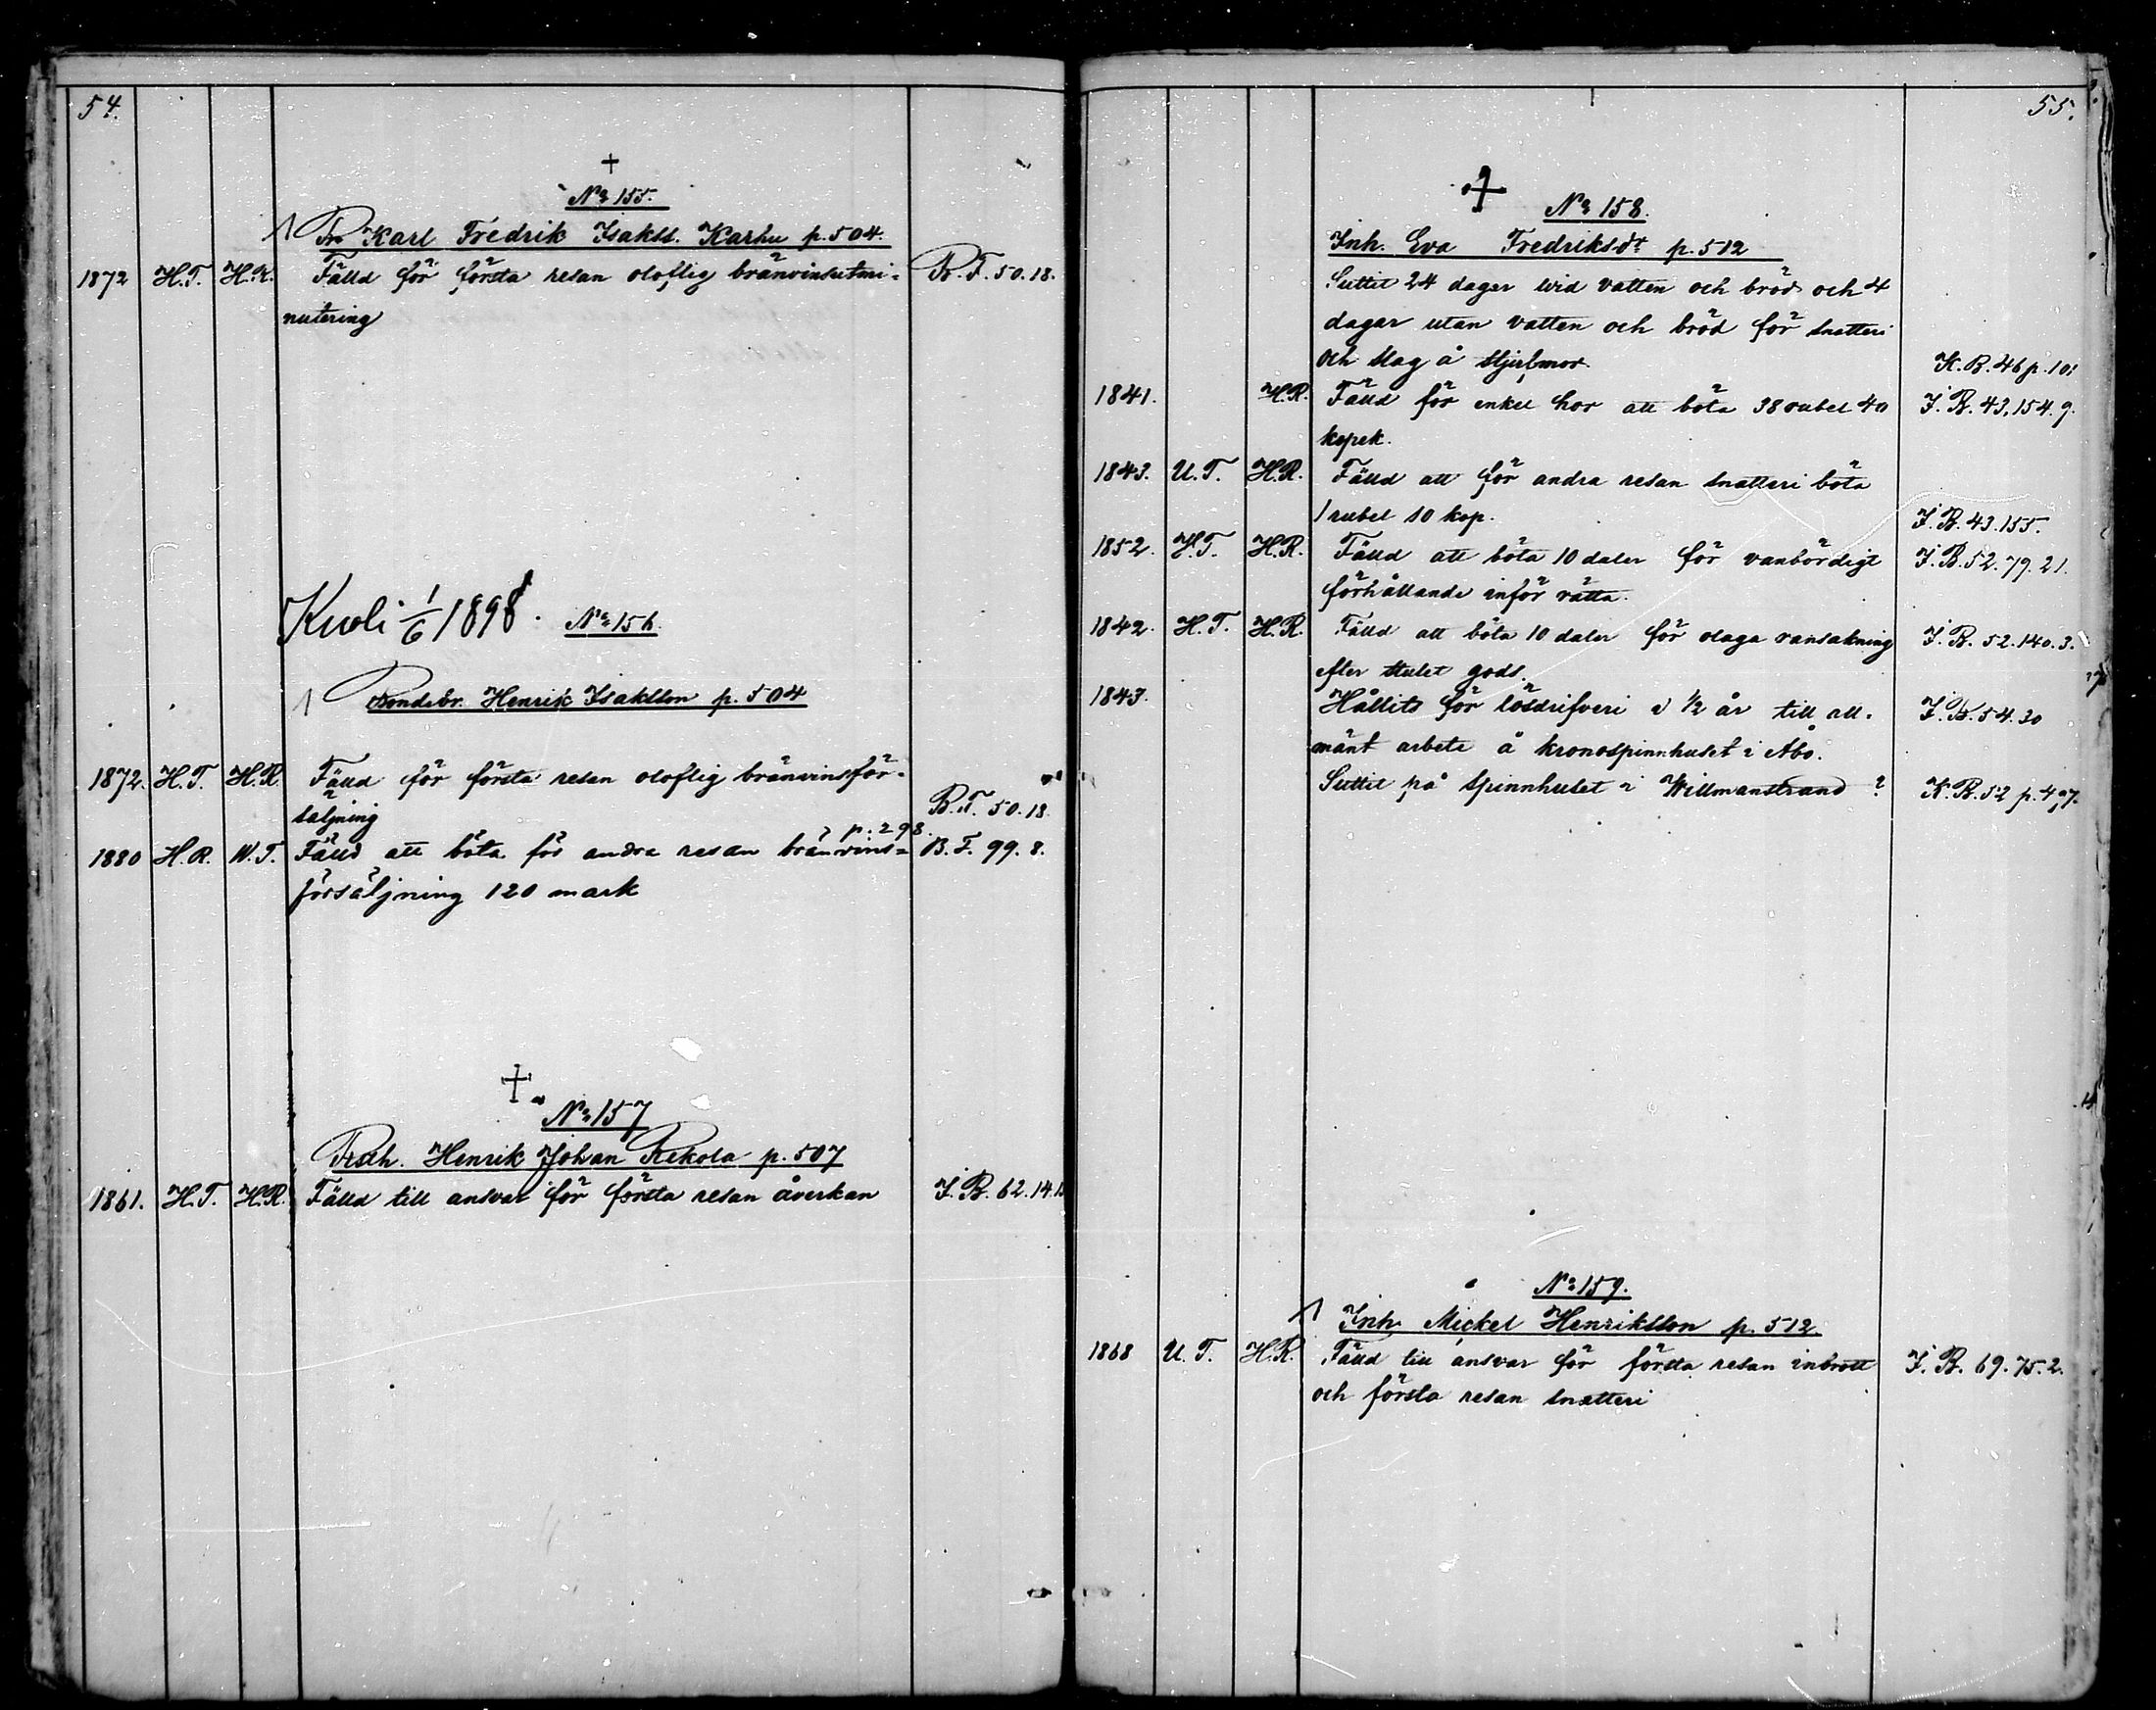 54.
+
No 155.
Tr. Karl Fredrik Isakss. Karhu p. 504.
1872 H.T. H.R. Fälld för första resan oloflig bränvinsutmi- B.F. 50.18.
nutering
Kuoli 1/6 1898. No 156.
Bondebr. Henrik Isaksson p. 504
1872. H.T. H.R. Fälld för första resan oloflig bränvinsför-
säljning B.F. 50.18
p. 298.
1880 H.R. W.T. Fälld att böta för andra resan bränvins= B.F. 99.8.
försäljning 120 mark
+
No 157
Henrik Johan Rekola p. 507
1861. H.T. H.R. Fälld till ansvar för första resan åverkan J.B. 62.14.
55.
+
No 158.
Inh. Eva Fredriksdr p. 512
Suttit 24 dagar wid vatten och bröd och 4
dagar utan vatten och bröd för snatteri
och slag å stjufmor. K.B. 46 p. 101
1841. H.R. Fälld för enkel hor att böta 38 rubel 40 J.B. 43.154.9.
kopek.
1843. U.T. H.R. Fälld att för andra resan snatteri böta
1 rubel 10 kop. J.B. 43.155.
1852. H.T. H.R. Fälld att böta 10 daler för vanbördigt J.B. 52.79.21.
förhållande inför rätta.
1842. H.T. H.R. Fälld att böta 10 daler för olaga ransakning J.B. 52.140.3.
efter stulet gods.
1843. Hållits för lösdrifveri i 1/2 år till all- J.B. 54.30
mänt arbete å kronospinnhuset i Åbo.
Suttit på Spinnhuset i Willmanstrand ? K.B. 52 p. 497.
No 159.
Inh. Mickel Henriksson p. 512
1868 U.T. H.R. Fälld till ansvar för första resan inbrott J.B. 69.75.2.
och första resan snatteri